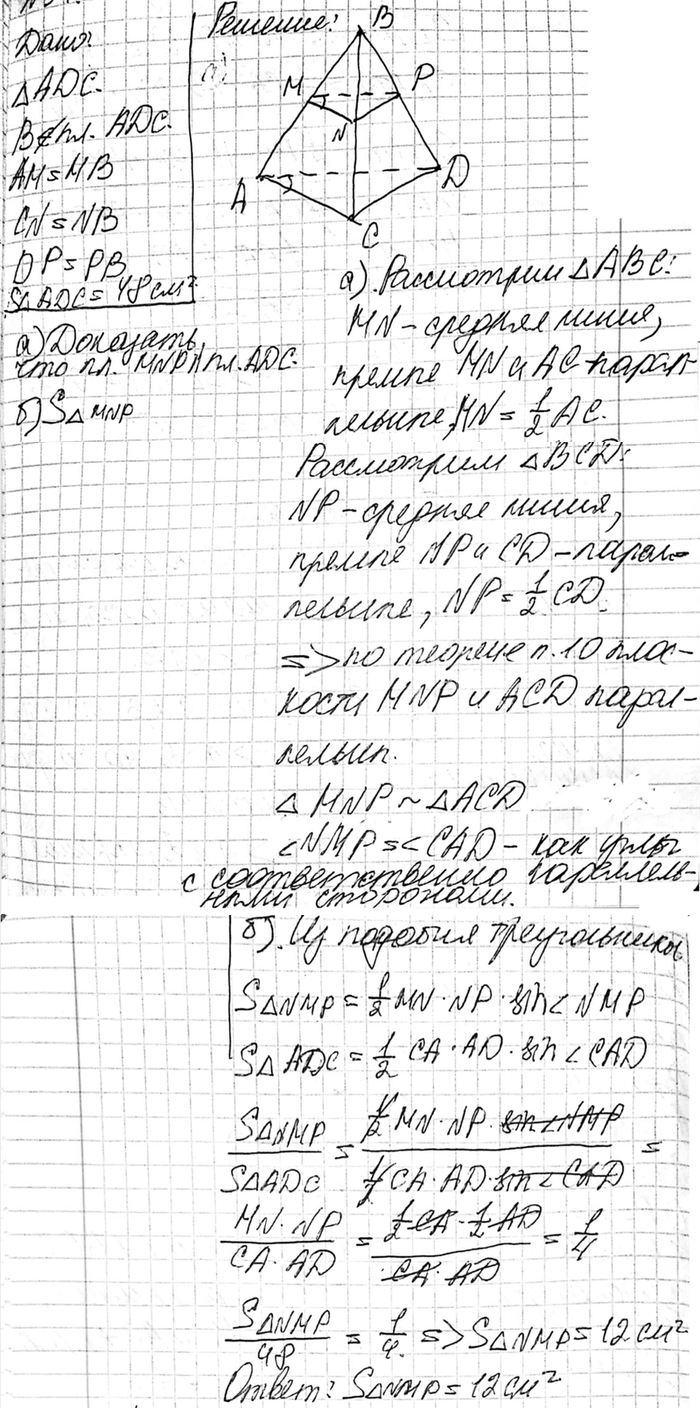 Дано:
△ADC.
B∉пл. ADC.
AM=MB
CN=NB
DP=PB
S△ADC=48см²
а) Доказать,
что пл. MNP∥пл.ADC.
б) S△MNP
Решение:
а)
B
M
P
N
A
D
C
а). Рассмотрим △ABC:
MN-средняя линия,
MN и AC-парал-
MN=1/2 AC.
Рассмотрим △BCD:
NP-средняя линия,
NP и CD-парал-
NP=1/2 CD.
=> по теореме п.10 плос-
кости MNP и ACD парал-
△MNP~△ACD
<NMP=<CAD-как углы
с соответственно параллель-
ными сторонами.
б). Из подобия треугольников
S△NMP=1/2 MN·NP·sin<NMP
S△ADC=1/2 CA·AD·sin<CAD
S△NMP/S△ADC = 1/2 MN·NP·sin<NMP / 1/2 CA·AD·sin<CAD =
MN·NP/CA·AD = 1/2 CA·1/2 AD / CA·AD = 1/4
S△NMP/48 = 1/4 => S△NMP=12см²
Ответ: S△NMP=12см²